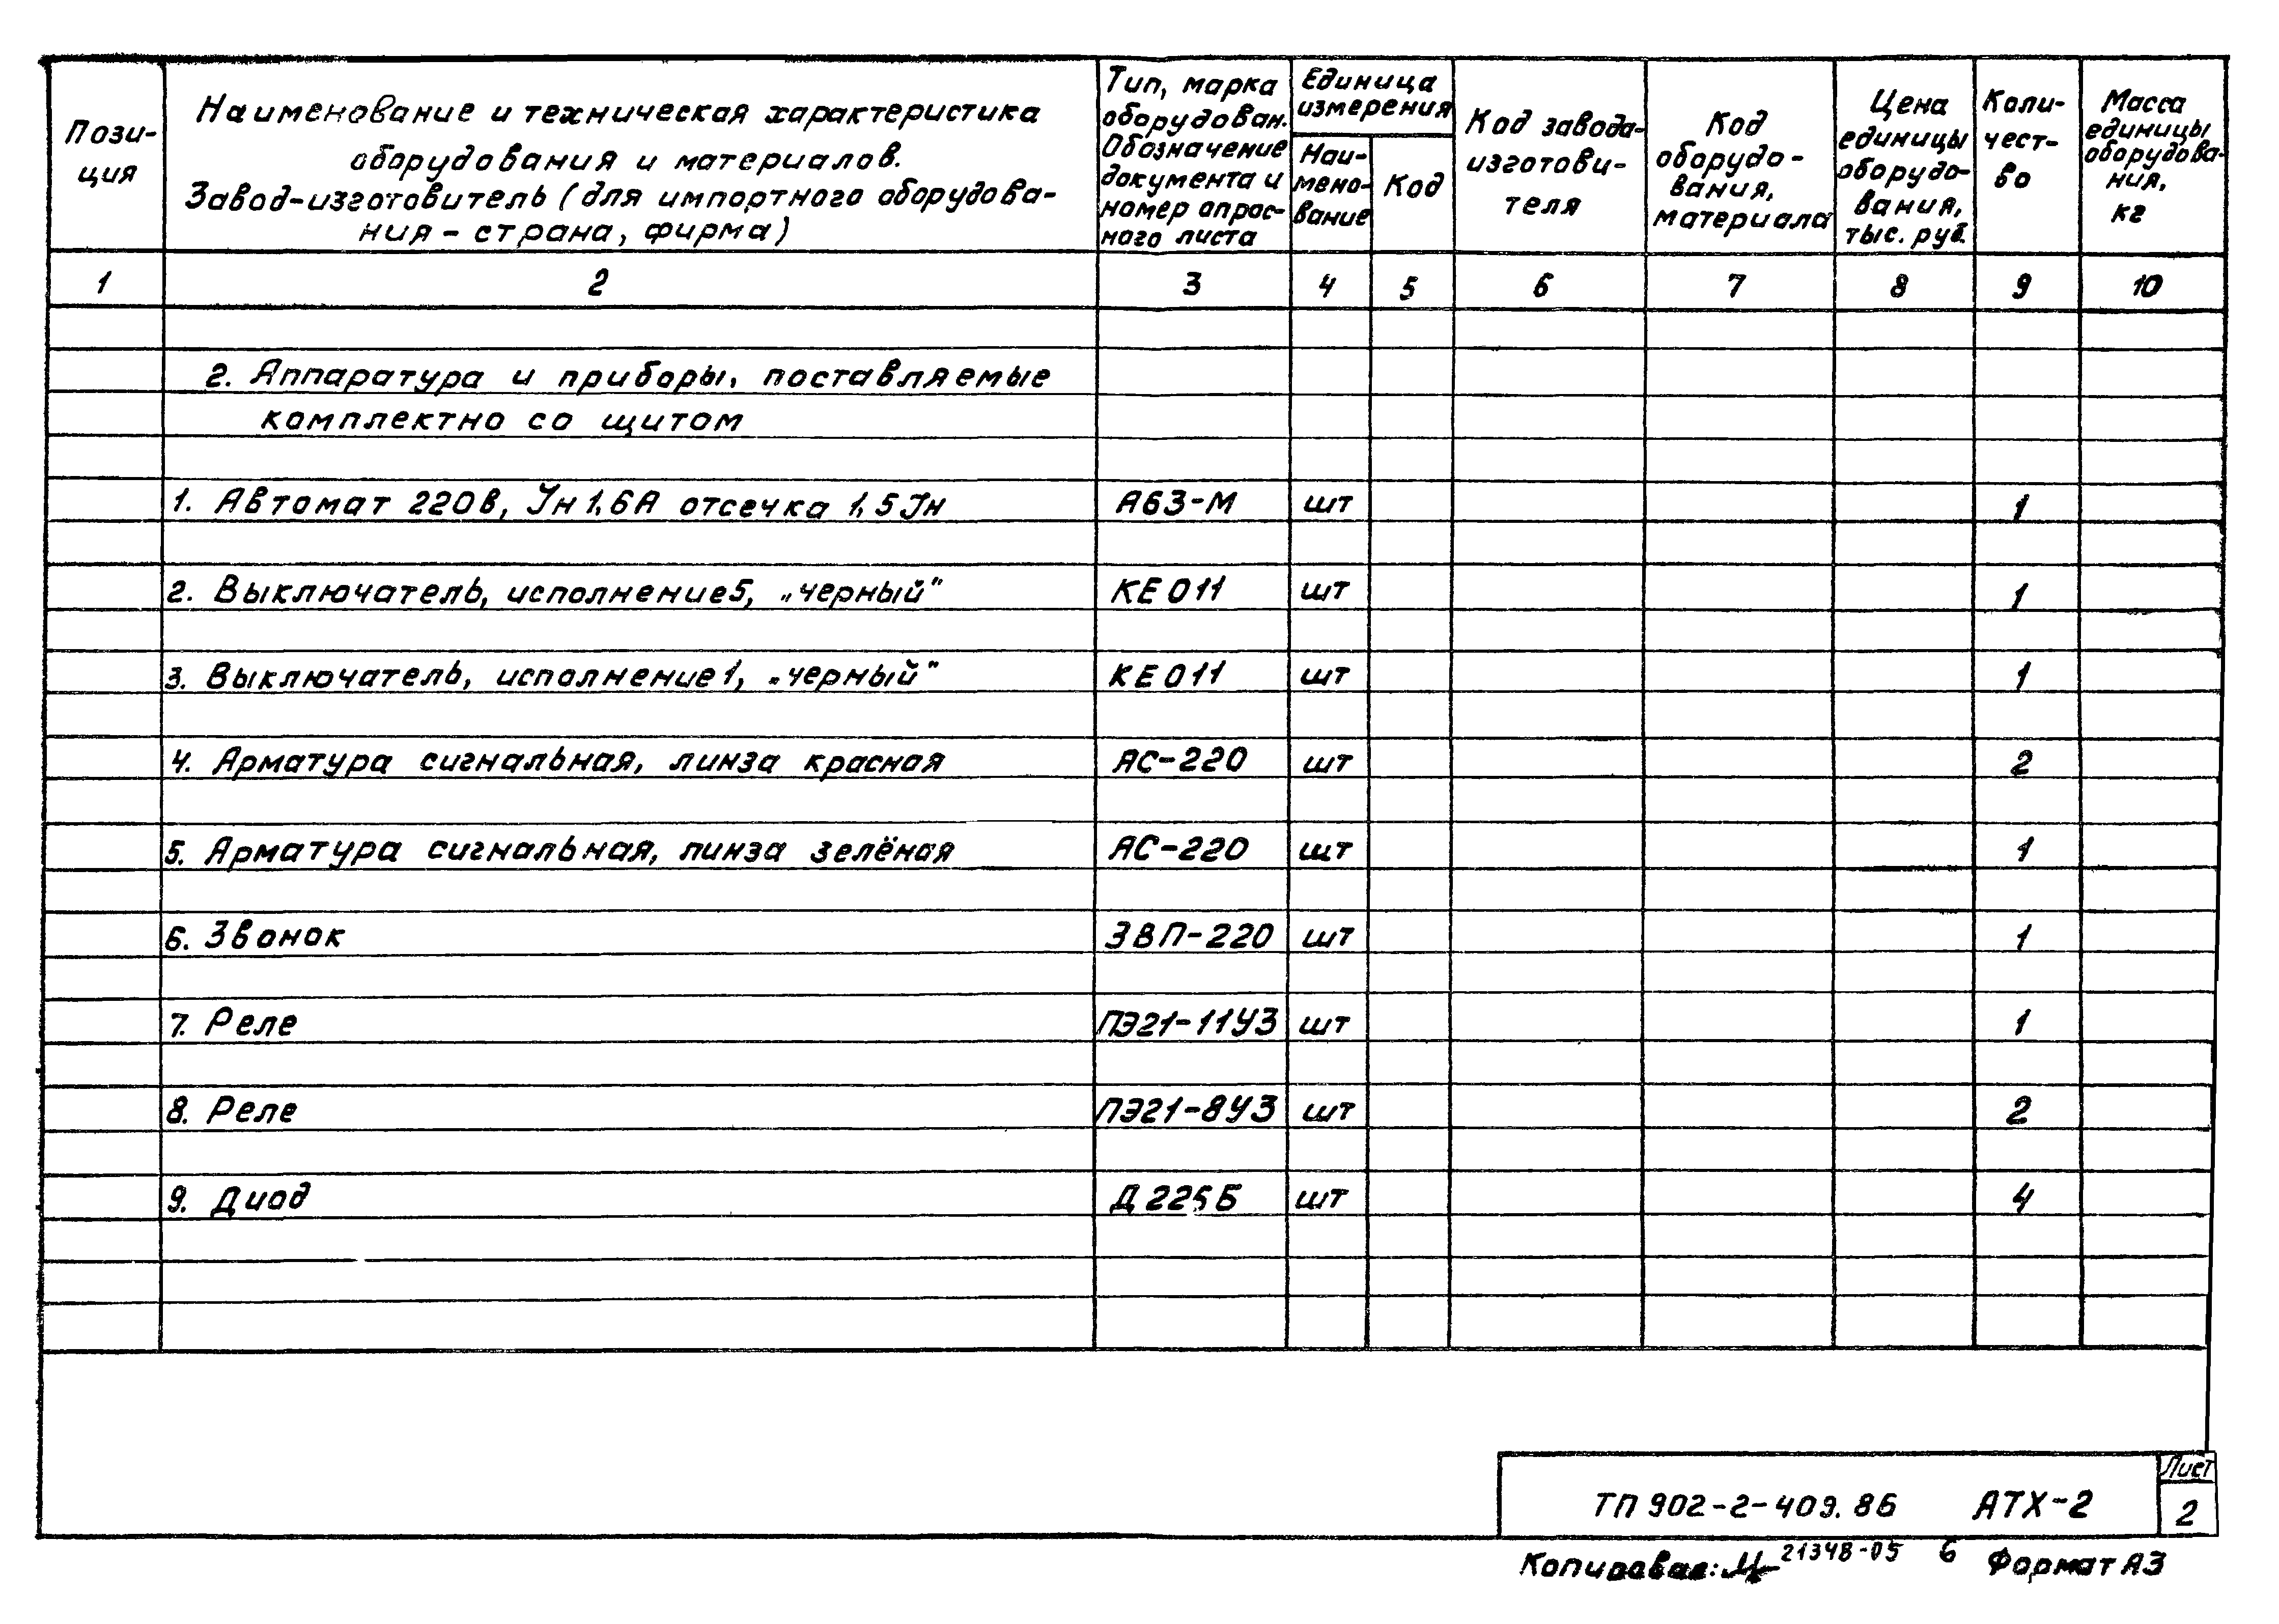 Пози-
ция
Наименование и техническая характеристика
оборудования и материалов.
Завод-изготовитель (для импортного оборудова-
ния - страна, фирма)
Тип, марка
оборудован.
Обозначение
документа и
номер опрос-
ного листа
Единица
измерения
Наи-
мено-
вание
Код
Код завода-
изготови-
теля
Код
оборудо-
вания,
материала
Цена
единицы
оборудо-
вания,
тыс. руб.
Коли-
чест-
во
Масса
единицы
оборудова-
ния,
кг
1 2 3 4 5 6 7 8 9 10
2. Аппаратура и приборы, поставляемые
комплектно со щитом
1. Автомат 220В, Jн 1,6А отсечка 1,5 Jн А63-М шт 1
2. Выключатель, исполнение 5, „черный" КЕ 011 шт 1
3. Выключатель, исполнение 1, „черный" КЕ 011 шт 1
4. Арматура сигнальная, линза красная АС-220 шт 2
5. Арматура сигнальная, линза зелёная АС-220 шт 1
6. Звонок ЗВП-220 шт 1
7. Реле ПЭ21-11У3 шт 1
8. Реле ПЭ21-8У3 шт 2
9. Диод Д 225Б шт 4
ТП 902-2-409.86 АТХ-2
Лист
2
Копировал: 21348-05 6 Формат А3